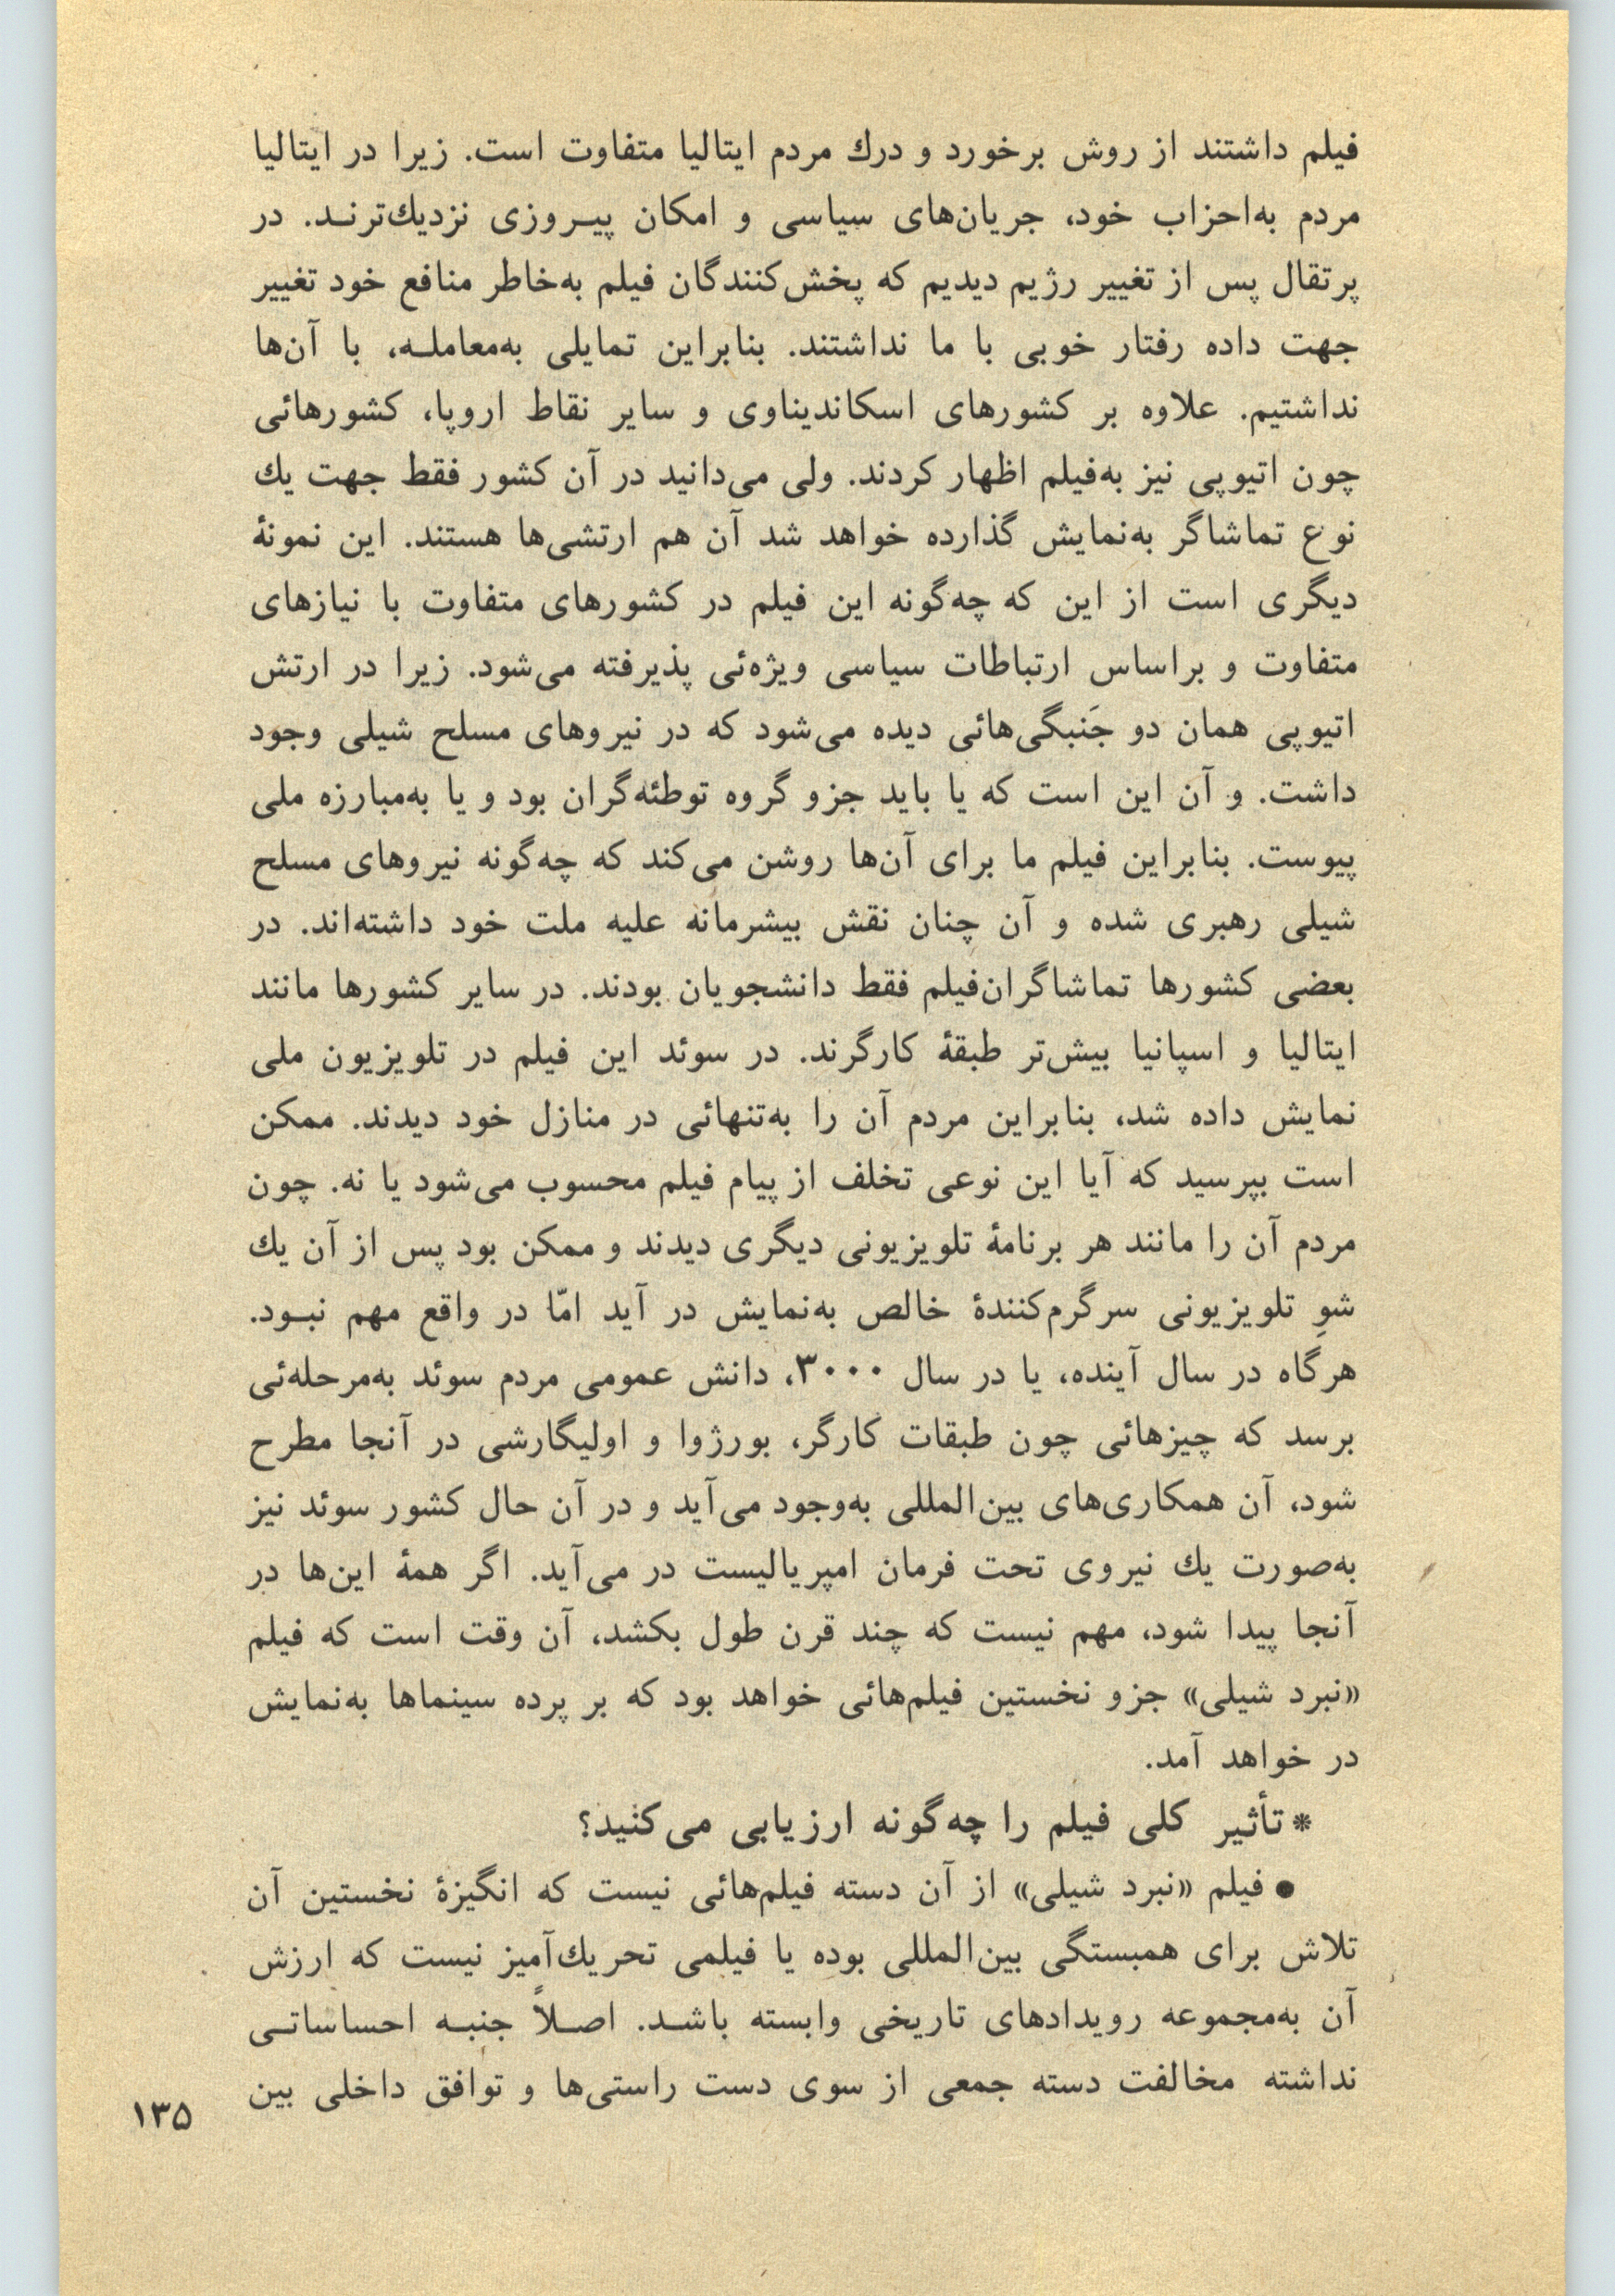 فیلم داشتند از روش برخورد و درك مردم ایتالیا متفاوت است. زیرا در ایتالیا
مردم به‌احزاب خود، جریان‌های سیاسی و امکان پیـروزی نزدیك‌ترنـد. در
پرتقال پس از تغییر رژیم دیدیم که پخش‌کنندگان فیلم به‌خاطر منافع خود تغییر
جهت داده رفتار خوبی با ما نداشتند. بنابراین تمایلی به‌معاملـه، با آن‌ها
نداشتیم. علاوه بر کشورهای اسکاندیناوی و سایر نقاط اروپا، کشورهائی
چون اتیوپی نیز به‌فیلم اظهار کردند. ولی می‌دانید در آن کشور فقط جهت یك
نوع تماشاگر به‌نمایش گذارده خواهد شد آن هم ارتشی‌ها هستند. این نمونهٔ
دیگری است از این که چه‌گونه این فیلم در کشورهای متفاوت با نیازهای
متفاوت و براساس ارتباطات سیاسی ویژه‌ئی پذیرفته می‌شود. زیرا در ارتش
اتیوپی همان دو جَنبگی‌هائی دیده می‌شود که در نیروهای مسلح شیلی وجود
داشت. و آن این است که یا باید جزو گروه توطئه‌گران بود و یا به‌مبارزه ملی
پیوست. بنابراین فیلم ما برای آن‌ها روشن می‌کند که چه‌گونه نیروهای مسلح
شیلی رهبری شده و آن چنان نقش بیشرمانه علیه ملت خود داشته‌اند. در
بعضی کشورها تماشاگران‌فیلم فقط دانشجویان بودند. در سایر کشورها مانند
ایتالیا و اسپانیا بیش‌تر طبقهٔ کارگرند. در سوئد این فیلم در تلویزیون ملی
نمایش داده شد، بنابراین مردم آن را به‌تنهائی در منازل خود دیدند. ممکن
است بپرسید که آیا این نوعی تخلف از پیام فیلم محسوب می‌شود یا نه. چون
مردم آن را مانند هر برنامهٔ تلویزیونی دیگری دیدند و ممکن بود پس از آن یك
شوِ تلویزیونی سرگرم‌کنندهٔ خالص به‌نمایش در آید امّا در واقع مهم نبـود.
هرگاه در سال آینده، یا در سال ۳۰۰۰، دانش عمومی مردم سوئد به‌مرحله‌ئی
برسد که چیزهائی چون طبقات کارگر، بورژوا و اولیگارشی در آنجا مطرح
شود، آن همکاری‌های بین‌المللی به‌وجود می‌آید و در آن حال کشور سوئد نیز
به‌صورت یك نیروی تحت فرمان امپریالیست در می‌آید. اگر همهٔ این‌ها در
آنجا پیدا شود، مهم نیست که چند قرن طول بکشد، آن وقت است که فیلم
«نبرد شیلی» جزو نخستین فیلم‌هائی خواهد بود که بر پرده سینماها به‌نمایش
در خواهد آمد.
* تأثیر کلی فیلم را چه‌گونه ارزیابی می‌کنید؟
● فیلم «نبرد شیلی» از آن دسته فیلم‌هائی نیست که انگیزهٔ نخستین آن
تلاش برای همبستگی بین‌المللی بوده یا فیلمی تحریك‌آمیز نیست که ارزش
آن به‌مجموعه رویدادهای تاریخی وابسته باشـد. اصـلاً جنبـه احساساتـی
نداشته مخالفت دسته جمعی از سوی دست راستی‌ها و توافق داخلی بین
۱۳۵